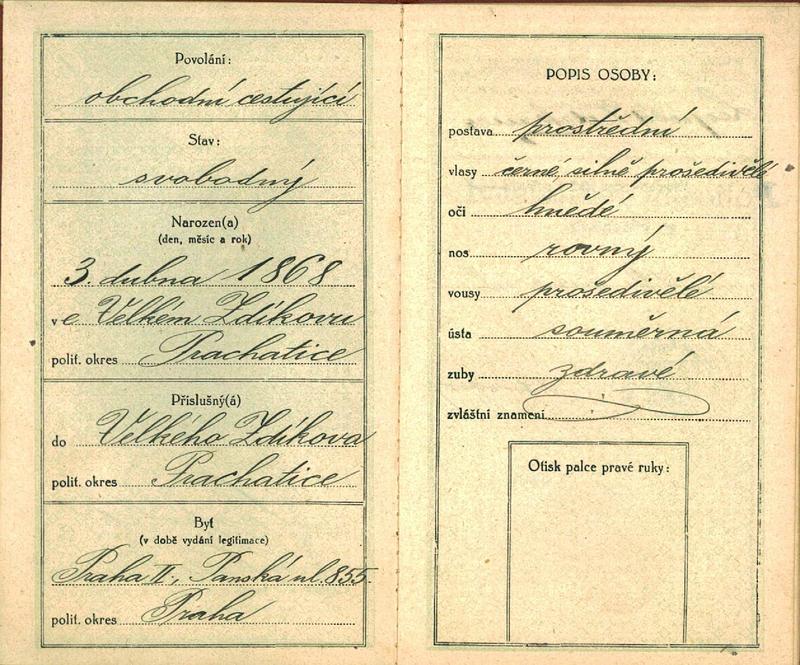 Povolání:
obchodní cestující
Stav:
svobodný
Narozen(a)
(den, měsíc a rok)
3. dubna 1868
v e Velkém Zdíkovu
polit. okres Prachatice
Příslušný(á)
do Velkého Zdíkova
polit. okres Prachatice
Byt
(v době vydání legitimace)
Praha II., Panská ul. 855.
polit. okres Praha
POPIS OSOBY:
postava prostřední
vlasy černé silně prošedivělé
oči hnědé
nos rovný
vousy prošedivělé
ústa souměrná
zuby zdravé
zvláštní znamení
Otisk palce pravé ruky: